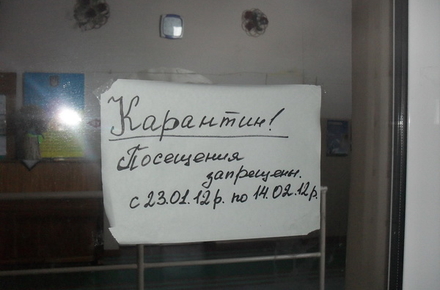 Карантин!
Посещения
запрещены.
с 23.01.12р. по 14.02.12р.